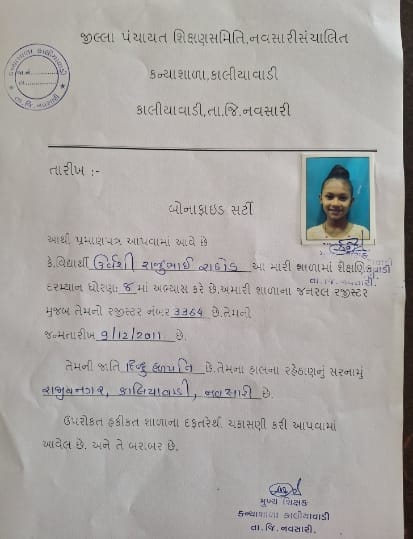 જીલ્લા પંચાયત શિક્ષણસમિતિ,નવસારીસંચાલિત
કન્યાશાળા,કાલીયાવાડી
કાલીયાવાડી,તા.જિ.નવસારી
કન્યાશાળા કાલીયાવાડી
તા.જિ. નવસારી
તારીખ :-
બોનાફાઇડ સર્ટી
આથી પ્રમાણપત્ર આપવામાં આવે છે
કે.વિદ્યાર્થી ઉર્વશી રાજુભાઈ રાઠોડ આ મારી શાળામાં શૈક્ષણિક
વાડી
તા.જિ. નવસારી.
દરમ્યાન ધોરણઃ ૪ માં અભ્યાસ કરે છે,અમારી શાળાના જનરલ રજીસ્ટર
મુજબ તેમનો રજીસ્ટર નંબર 3364 છે.તેમની
જન્મતારીખ 9/12/2011 છે.
તેમની જાતિ હિન્દુ હળપતિ છે.તેમના હાલના રહેઠાણનું સરનામું
રાજીવનગર, કાલિયાવાડી, નવસારી છે.
ઉપરોક્ત હકીકત શાળાના દફતરેથી ચકાસણી કરી આપવામાં
આવેલ છે. અને તે બરાબર છે.
મુખ્ય શિક્ષક
કન્યાશાળા કાલીયાવાડી
તા.જિ. નવસારી.